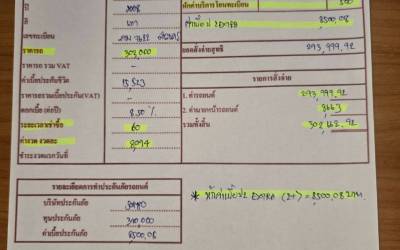 ปี 2008
สี เทา
หักค่าบริการโอนทะเบียน 500
ค่าเบี้ยป2 EXTRA 8500,08
เลขทะเบียน
ราคารถ 302,000
ยอดสั่งจ่ายสุทธิ 293,999.92
ราคารถ รวม VAT -
ค่าเบี้ยประกันชีวิต 15,523
รายการสั่งจ่าย
ราคารถรวมเบี้ยประกัน(VAT) -
1. ค่ารถยนต์ 293,999.92
ดอกเบี้ย (ต่อปี) 8.50 %
2. ค่านายหน้ารถยนต์ 8663
ระยะเวลาเช่าซื้อ 60
รวมทั้งสิ้น 302,662.92
ค่างวด งวดละ 8,094
ชำระงวดแรกวันที่
รายละเอียดการทำประกันภัยรถยนต์
บริษัทประกันภัย
ทุนประกันภัย 310,000
ค่าเบี้ยประกันภัย 8500,08
* หักค่าเบี้ยป2 EXTRA (2+) = 8500,08 บาท.